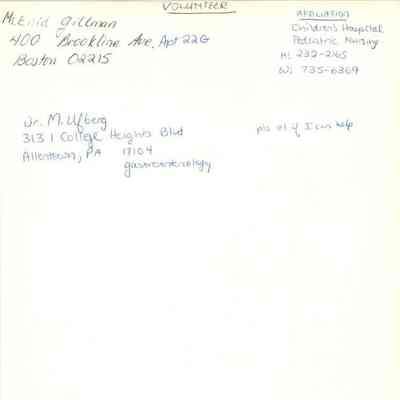 VOLUNTEER
AFFILIATION
M. Enid Gillman
400 Brookline Ave. Apt 22G
Boston 02215
Children's Hospital
Pediatric Nursing
H: 232-2165
W: 735-6369
Dr. M. Ufberg
3131 College Heights Blvd
Allentown, PA 17104
gastroenterology
pls if I can help